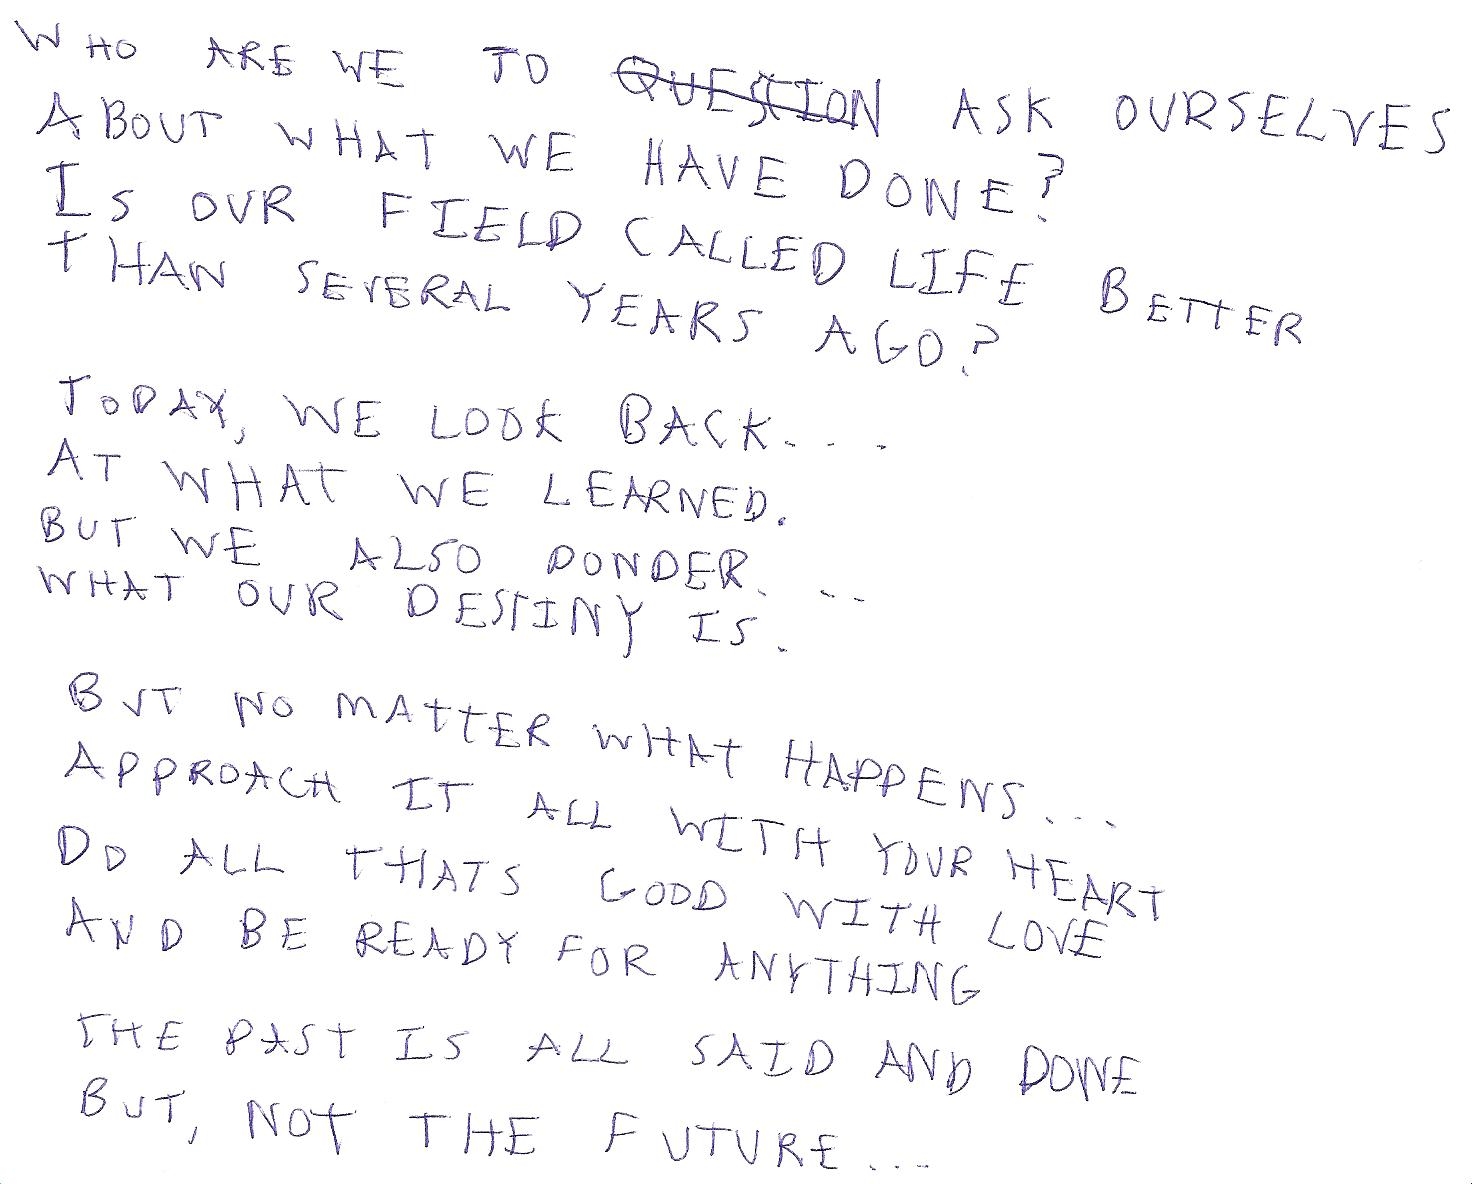 WHO ARE WE TO QUESTION ASK OURSELVES
ABOUT WHAT WE HAVE DONE?
IS OUR FIELD CALLED LIFE BETTER
THAN SEVERAL YEARS AGO?
TODAY, WE LOOK BACK...
AT WHAT WE LEARNED.
BUT WE ALSO PONDER...
WHAT OUR DESTINY IS.
BUT NO MATTER WHAT HAPPENS...
APPROACH IT ALL WITH YOUR HEART
DO ALL THATS GOOD WITH LOVE
AND BE READY FOR ANYTHING
THE PAST IS ALL SAID AND DONE
BUT, NOT THE FUTURE...